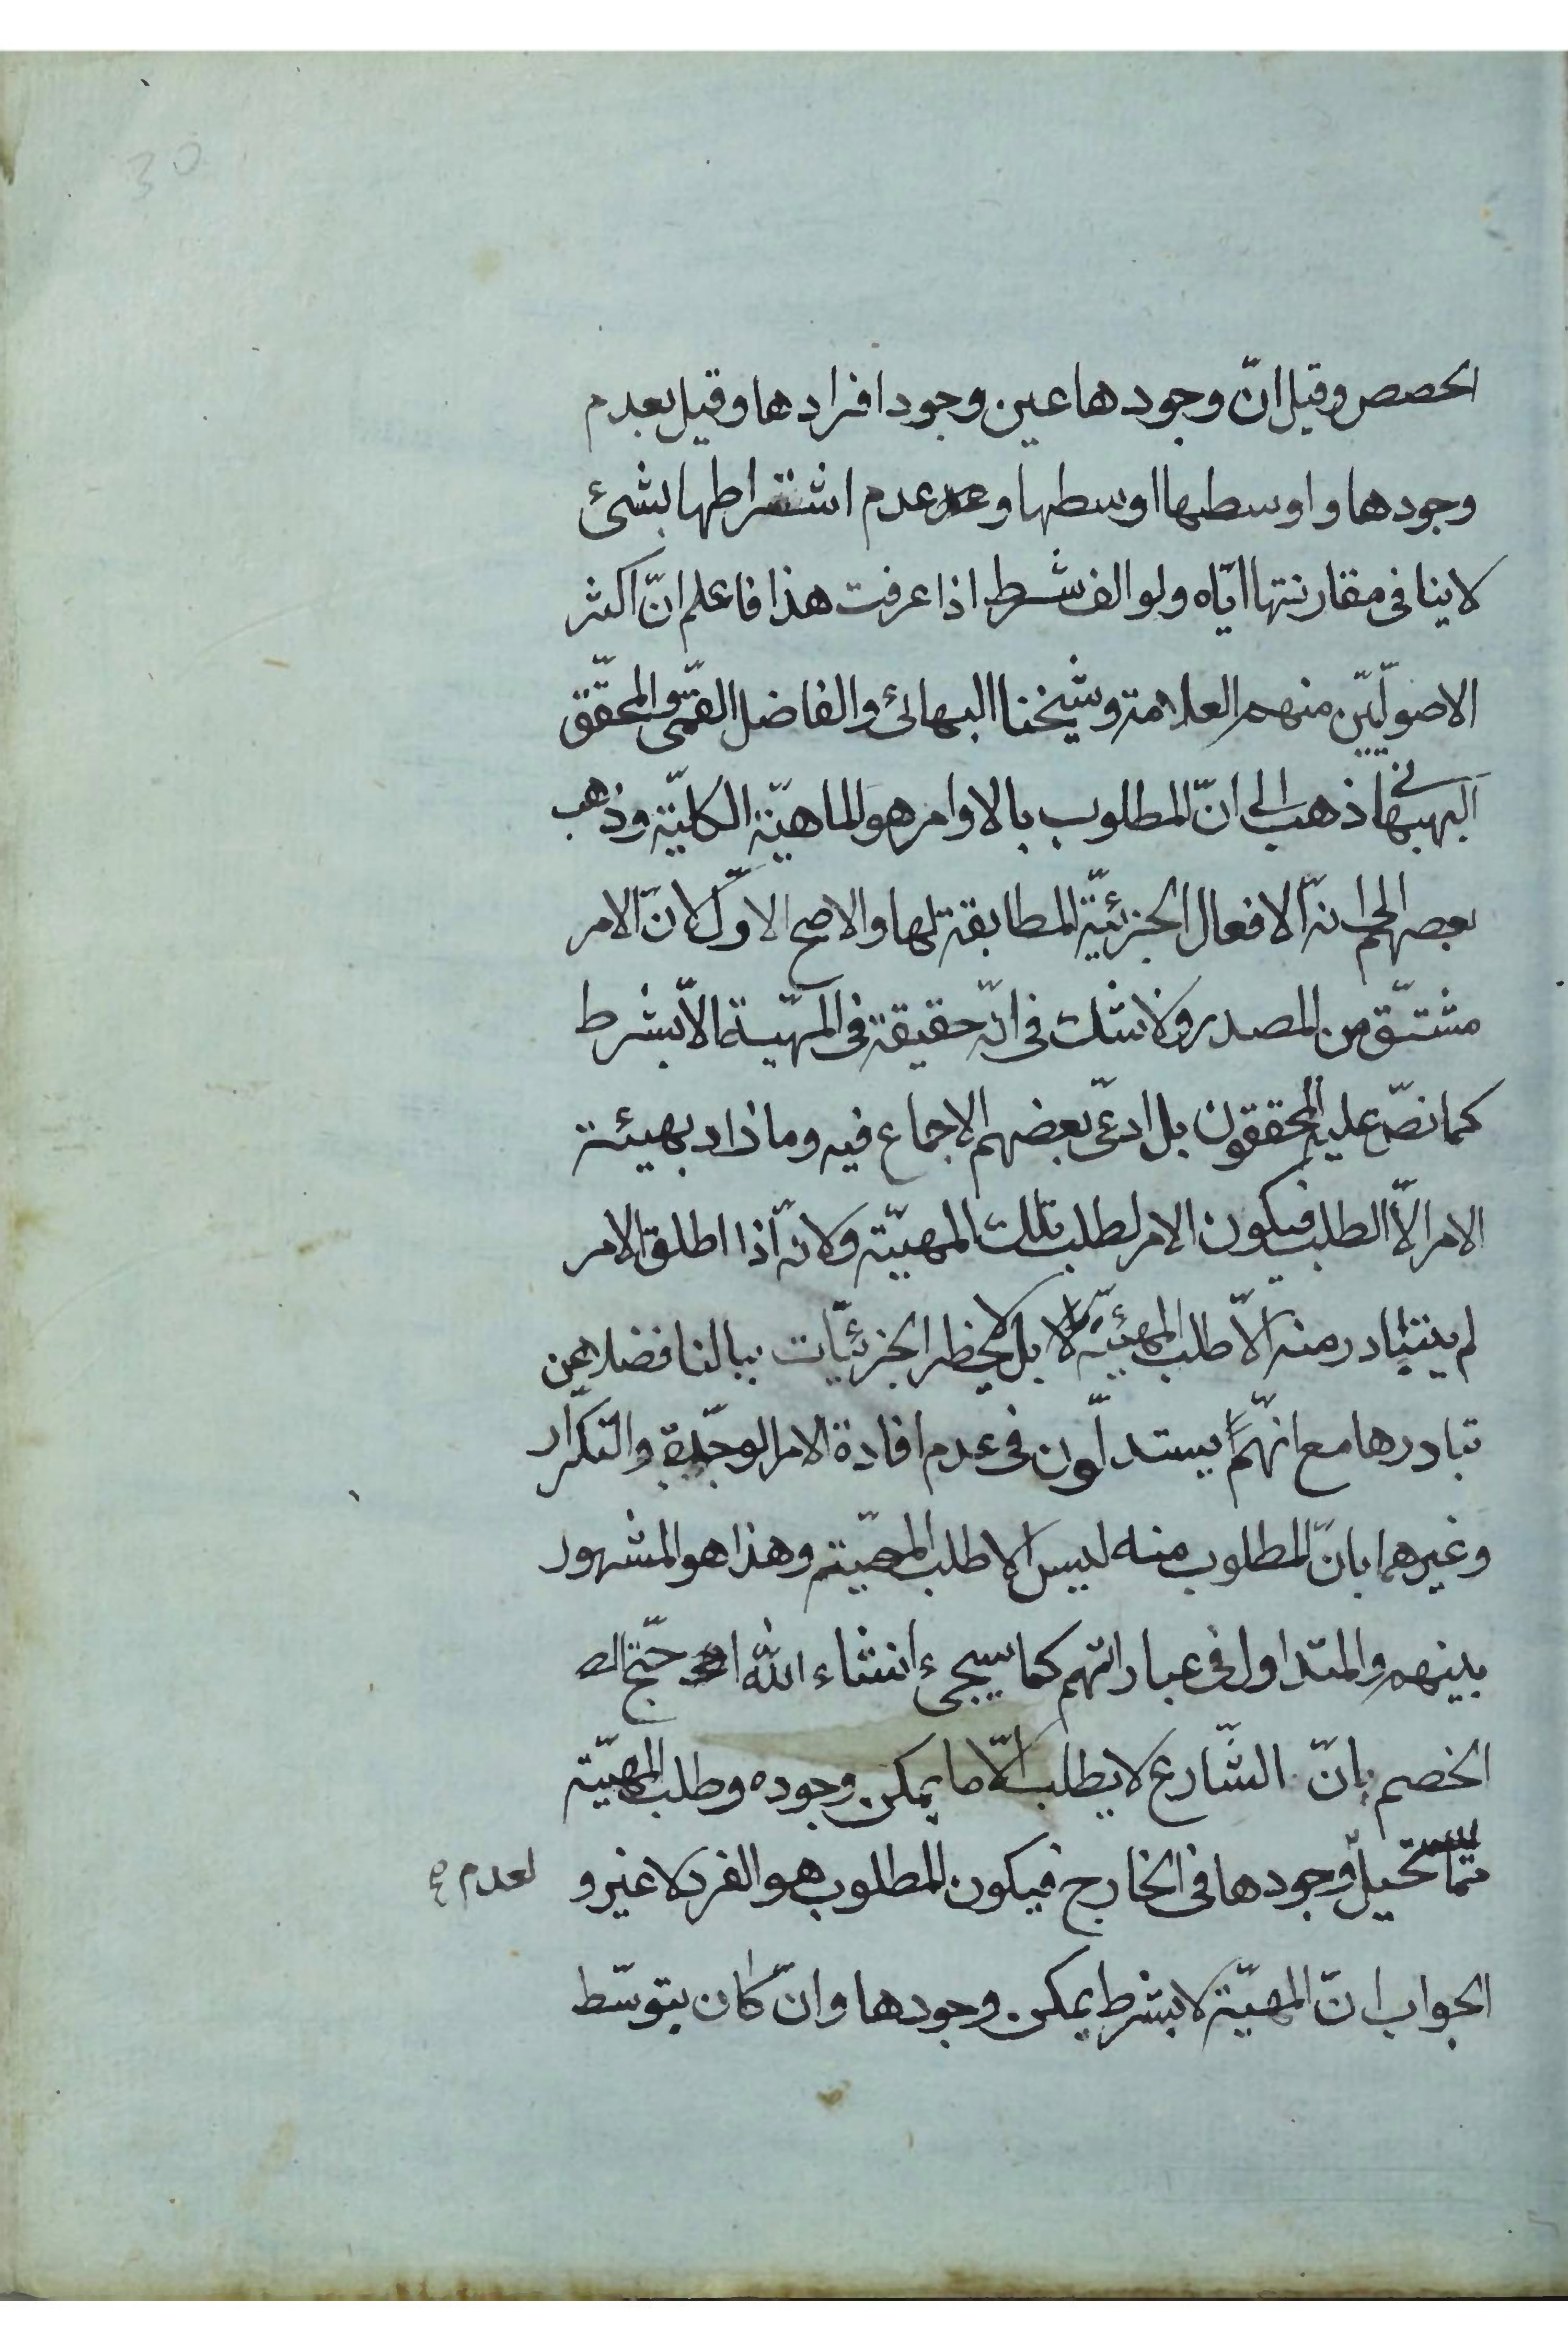 30
الحصص وقيل انّ وجودها عين وجود افرادها وقيل بعدم
وجودها واوسطها اوسطها وعدم اشتراطها بشئ
لاينافى مقارنتها ايّاه ولو الف شرط اذا عرفت هذا فاعلم انّ اكثر
الاصوليّين منهم العلامة وشيخنا البهائى والفاضل القمّى والمحقّق
البهبهانى ذهب الى انّ المطلوب بالاوامر هو الماهيّة الكليّة وذهب
بعضهم الى انّه الافعال الجزئيّة المطابقة لها والاصح الاوّل لانّ الامر
مشتقّ من المصدر ولا شك فى انّه حقيقة فى المهيّة الّا بشرط
كما نصّ عليه المحققون بل ادعى بعضهم الاجماع فيه وما زاد بهيئة
الامر الّا الطلب فيكون الامر لطلب تلك المهيّة ولانّه اذا اطلق الامر
لم يتبادر منه الّا طلب المهيّة بل لا يخطر الجزئيّات ببالنا فضلا عن
تبادرها مع انهم يستدلّون فى عدم افادة الامر الوحدة والتكرار
وغيرهما بانّ المطلوب منه ليس الا طلب المهيّة وهذا هو المشهور
بينهم والمتداول فى عباراتهم كما سيجىء انشاء الله احتج
الخصم بانّ الشّارع لا يطلب الّا ما يمكن وجوده وطلب المهيّة
ممّا يستحيل وجودها فى الخارج فيكون المطلوب هو الفرد لا غير و
لعدم
الجواب انّ المهيّة لا بشرط يمكن وجودها وان كان بتوسّط